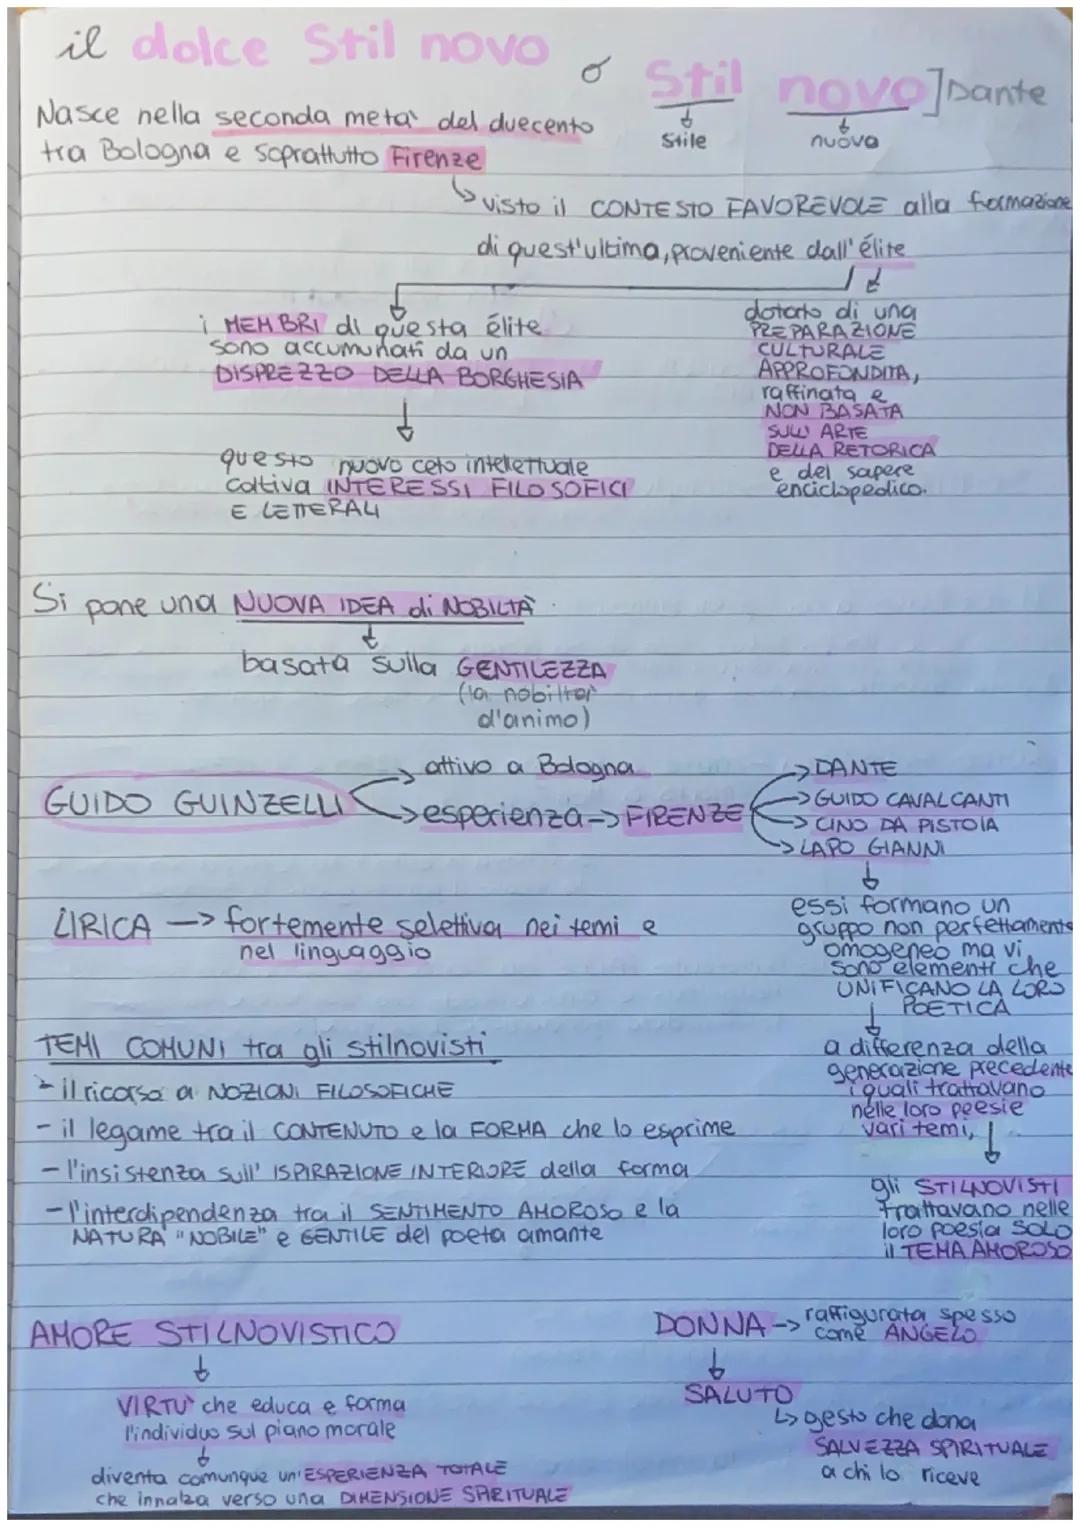 il dolce Stil novo o Stil novo] Dante
Stile nuova
Nasce nella seconda meta' del duecento
tra Bologna e soprattutto Firenze
visto il CONTESTO FAVOREVOLE alla formazione
di quest'ultima, proveniente dall'élite
i MEMBRI di questa élite
sono accumunati da un
DISPREZZO DELLA BORGHESIA
questo nuovo ceto intellettuale
coltiva INTERESSI FILOSOFICI
E LETTERALI
dotato di una
PREPARAZIONE
CULTURALE
APPROFONDITA,
raffinata e
NON BASATA
SULL' ARTE
DELLA RETORICA
e del sapere
enciclopedico.
Si pone una NUOVA IDEA di NOBILTÀ
basata sulla GENTILEZZA
(la nobilta'
d'animo)
GUIDO GUINZELLI
attivo a Bologna
esperienza -> FIRENZE
-> DANTE
-> GUIDO CAVALCANTI
-> CINO DA PISTOIA
-> LAPO GIANNI
essi formano un
gruppo non perfettamente
omogeneo ma vi
sono elementi che
UNIFICANO LA LORO
POETICA
a differenza della
generazione precedente
i quali trattavano
nelle loro poesie
vari temi,
gli STILNOVISTI
trattavano nelle
loro poesia SOLO
il TEMA AMOROSO
LIRICA -> fortemente selettiva nei temi e
nel linguaggio
TEMI COMUNI tra gli stilnovisti
- il ricorso a NOZIONI FILOSOFICHE
- il legame tra il CONTENUTO e la FORMA che lo esprime
- l'insistenza sull' ISPIRAZIONE INTERIORE della forma
- l'interdipendenza tra il SENTIMENTO AMOROSO e la
NATURA "NOBILE" e GENTILE del poeta amante
AMORE STILNOVISTICO
VIRTU' che educa e forma
l'individuo sul piano morale
diventa comunque un'ESPERIENZA TOTALE
che innalza verso una DIMENSIONE SPIRITUALE
DONNA -> raffigurata spesso
come ANGELO
SALUTO
gesto che dona
SALVEZZA SPIRITUALE
a chi lo riceve